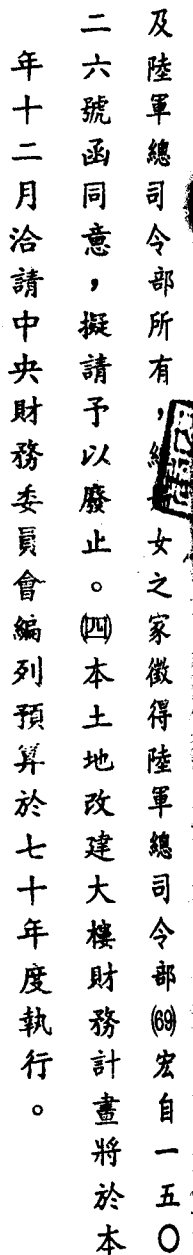 及陸軍總司令部所有，經女之家徵得陸軍總司令部(69)宏自一五〇
二六號函同意，擬請予以廢止。㈣本土地改建大樓財務計畫將於本
年十二月洽請中央財務委員會編列預算於七十年度執行。